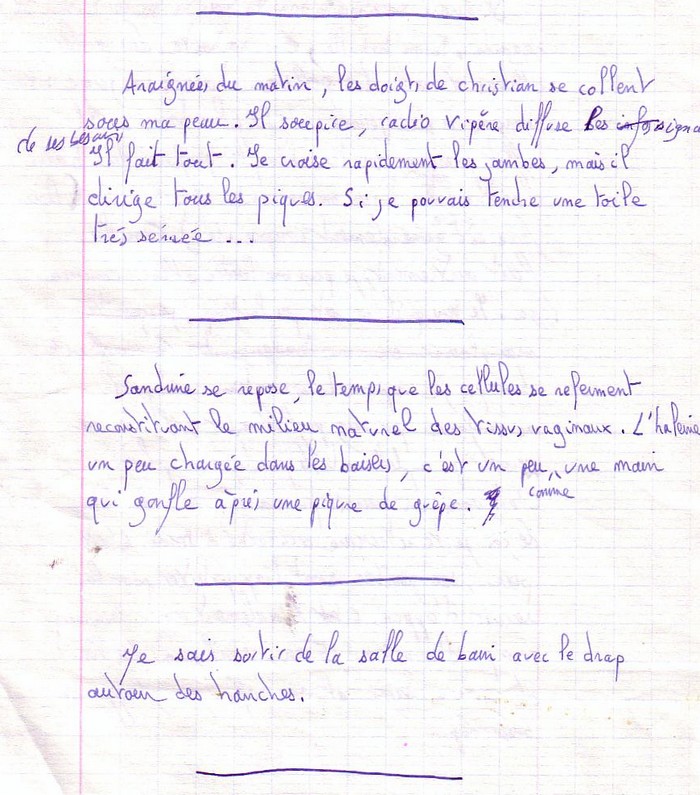 Araignées du matin, les doigts de christian se collent
sous ma peau. Il soupire, radio vipère diffuse les infos signa
de ses besoins
Il fait tout. Je croise rapidement les jambes, mais il
dirige tous les piques. Si je pouvais tendre une toile
très serrée ...
Sandrine se repose, le temps que les cellules se referment
reconstituant le milieu naturel des tissus vaginaux. L'haleine
un peu chargée dans les baisers, c'est un peu comme une main
qui gonfle après une piqure de guêpe.
Je sais sortir de la salle de bain avec le drap
autour des hanches.